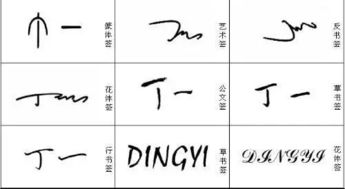 丁一 篆体签
艺术签
反书签
花体签
丁一 公文签
丁一 草书签
丁一 行书签
DINGYI 草书签
DINGYI 花体签